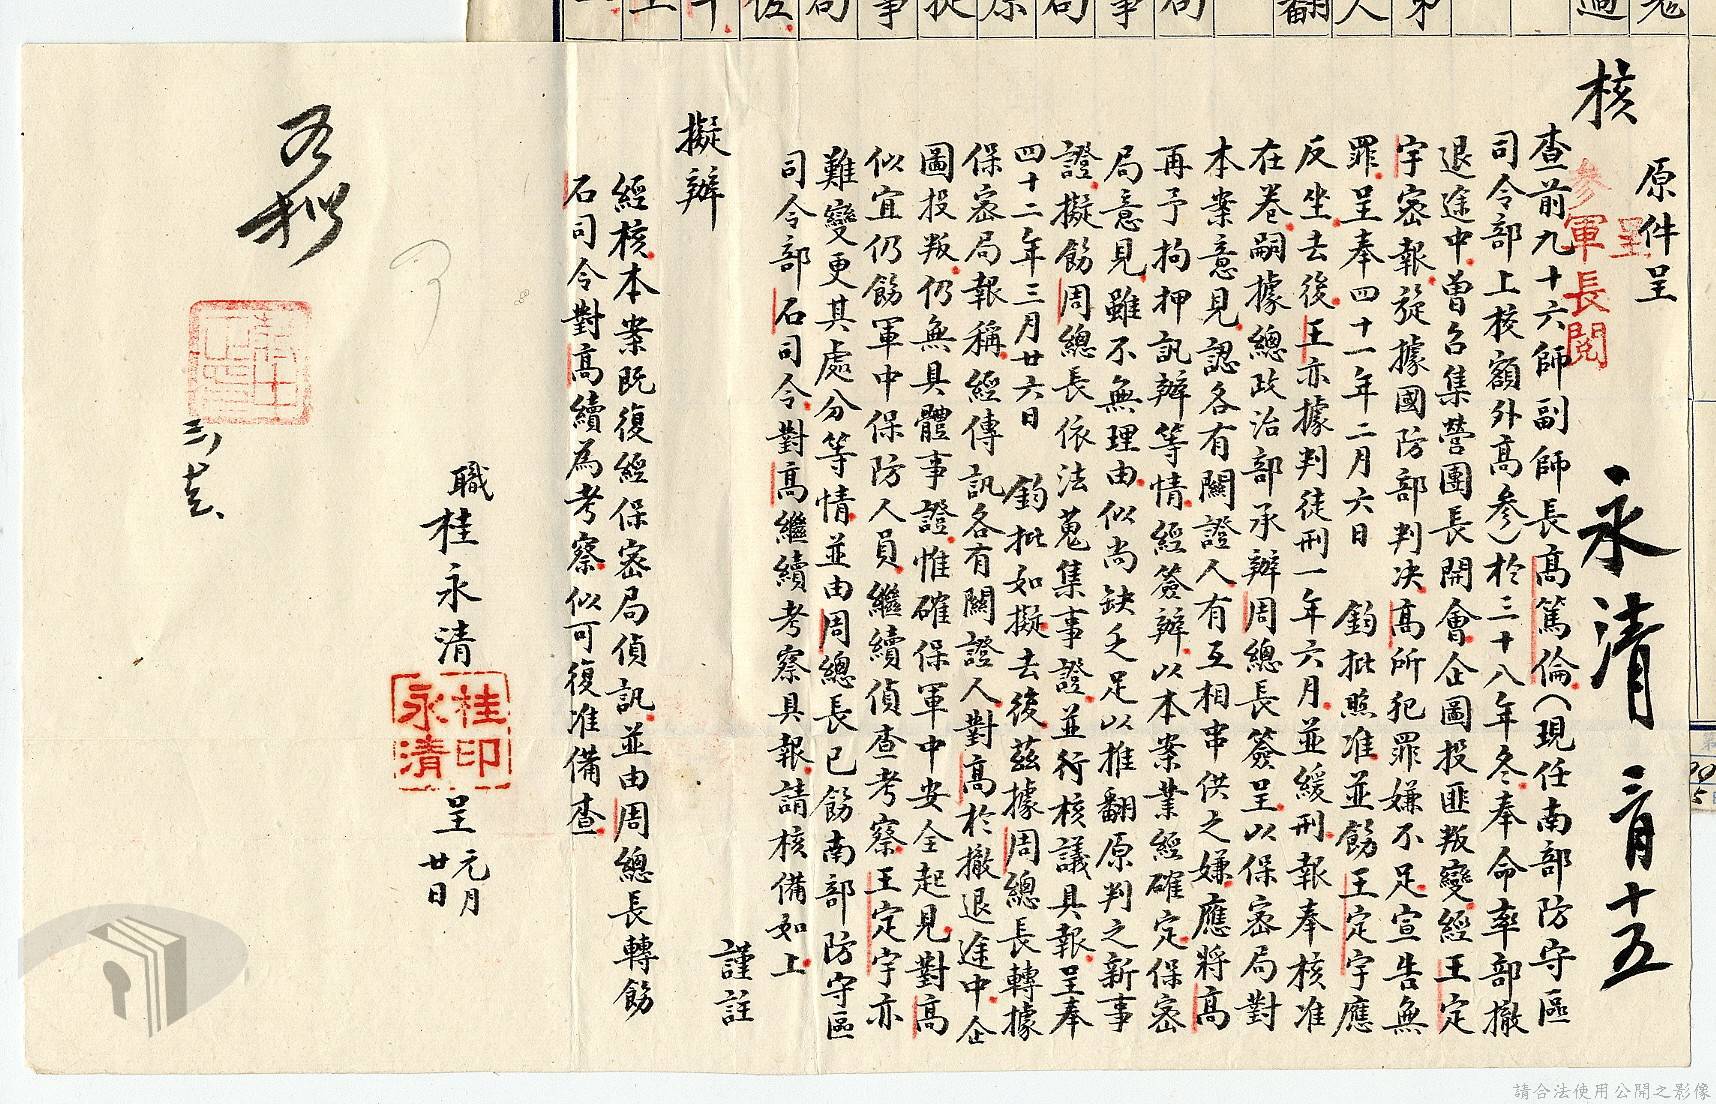 核
原件呈
呈
參軍長閱
永清 三月十五
查前九十六師副師長高篤倫（現任南部防守區
司令部上校額外高參）於三十八年冬奉命率部撤
退途中曾召集營團長開會企圖投匪叛變經王定
宇密報旋據國防部判決高所犯罪嫌不足宣告無
罪呈奉四十一年二月六日 鈞批照准並飭王定宇應
反坐去後王亦據判徒刑一年六月並緩刑報奉核准
在卷嗣據總政治部承辦周總長簽呈以保密局對
本案意見認各有關證人有互相串供之嫌應將高
再予拘押訊辦等情經簽辦以本案業經確定保密
局意見雖不無理由似尚缺乏足以推翻原判之新事
證擬飭周總長依法蒐集事證並行核議具報呈奉
四十二年三月廿六日 鈞批如擬去後茲據周總長轉據
保密局報稱經傳訊各有關證人對高於撤退途中企
圖投叛仍無具體事證惟確保軍中安全起見對高
似宜仍飭軍中保防人員繼續偵查考察王定宇亦
難變更其處分等情並由周總長已飭南部防守區
司令部石司令對高繼續考察具報請核備如上
謹註
擬辦
經核本案既復經保密局偵訊並由周總長轉飭
石司令對高續為考察似可復准備查
職桂永清
桂永清印
呈 元月廿日
如擬
三、十五、
請合法使用公開之影像